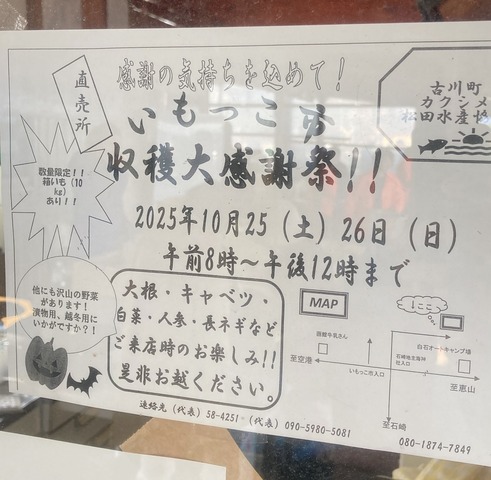 感謝の気持ちを込めて!
直売所
いもっこ市
収穫大感謝祭!!
古川町
カクシメ
松田水産
数量限定!!
箱いも(10
kg)
あり!!
2025年10月25(土)26日(日)
午前8時～午後12時まで
他にも沢山の野菜
があります!
漬物用、越冬用に
いかがですか?!
大根・キャベツ・
白菜・人参・長ネギなど
ご来店時のお楽しみ!!
是非お越しください。
MAP
ここ
函館牛乳さん
白石オートキャンプ場
石崎地主海神
社入口
至空港
いもっこ市入口
至恵山
至石崎
連絡先(代表)58-4251 (代表)090-5980-5081
080-1874-7849